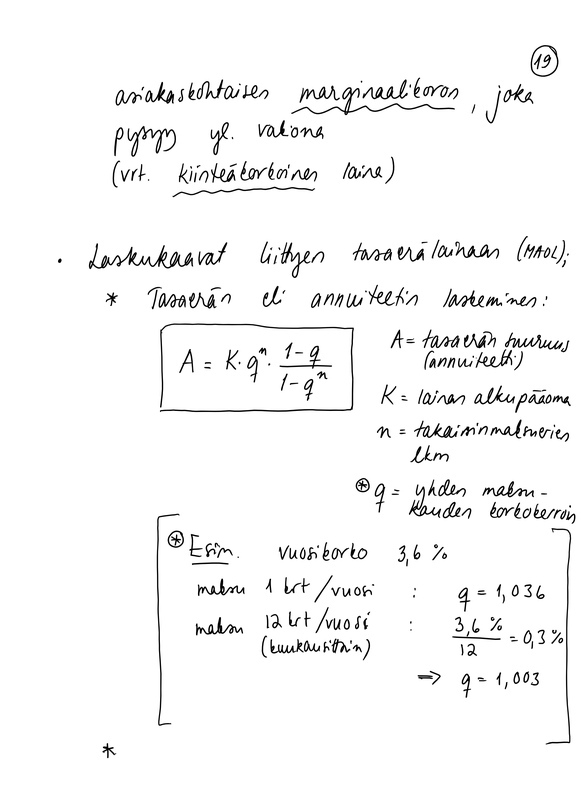 19
asiakaskohtaisen marginaalikoron, joka
pysyy yl. vakiona
(vrt. kiinteäkorkoinen laina)
• Laskukaavat liittyen tasaerälainaan (MAOL);
* Tasaerän eli annuiteetin laskeminen:
A = K · qⁿ · (1-q)/(1-qⁿ)
A = tasaerän suuruus
(annuiteetti)
K = lainan alkupääoma
n = takaisinmaksuerien
lkm
⊛ q = yhden maksu-
kauden korkokerroin
⊛ Esim. vuosikorko 3,6 %
maksu 1 krt/vuosi : q = 1,036
maksu 12 krt/vuosi : 3,6 %/12 = 0,3%
(kuukausittain)
⇒ q = 1,003
*